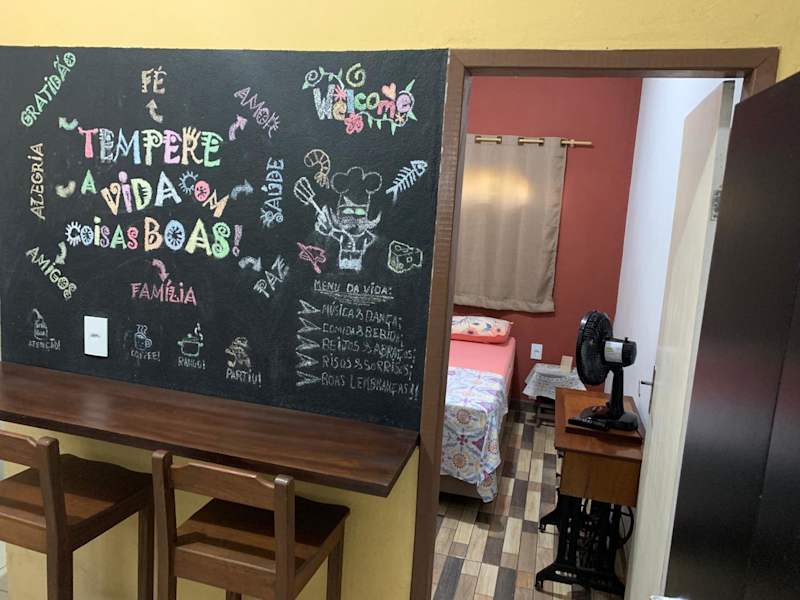 GRATIDÃO
FÉ
AMOR
Welcome
TEMPERE
ALEGRIA
A VIDA COM
SAÚDE
COISAS BOAS!
AMIGOS
PAZ
FAMÍLIA
MENU DA VIDA:
MÚSICA & DANÇA;
COMIDA & BEBIDA;
BEIJOS & ABRAÇOS;
RISOS & SORRISOS;
BOAS LEMBRANÇAS!!
ATENÇÃO!
COFFEE!
RANGO!
PARTIU!